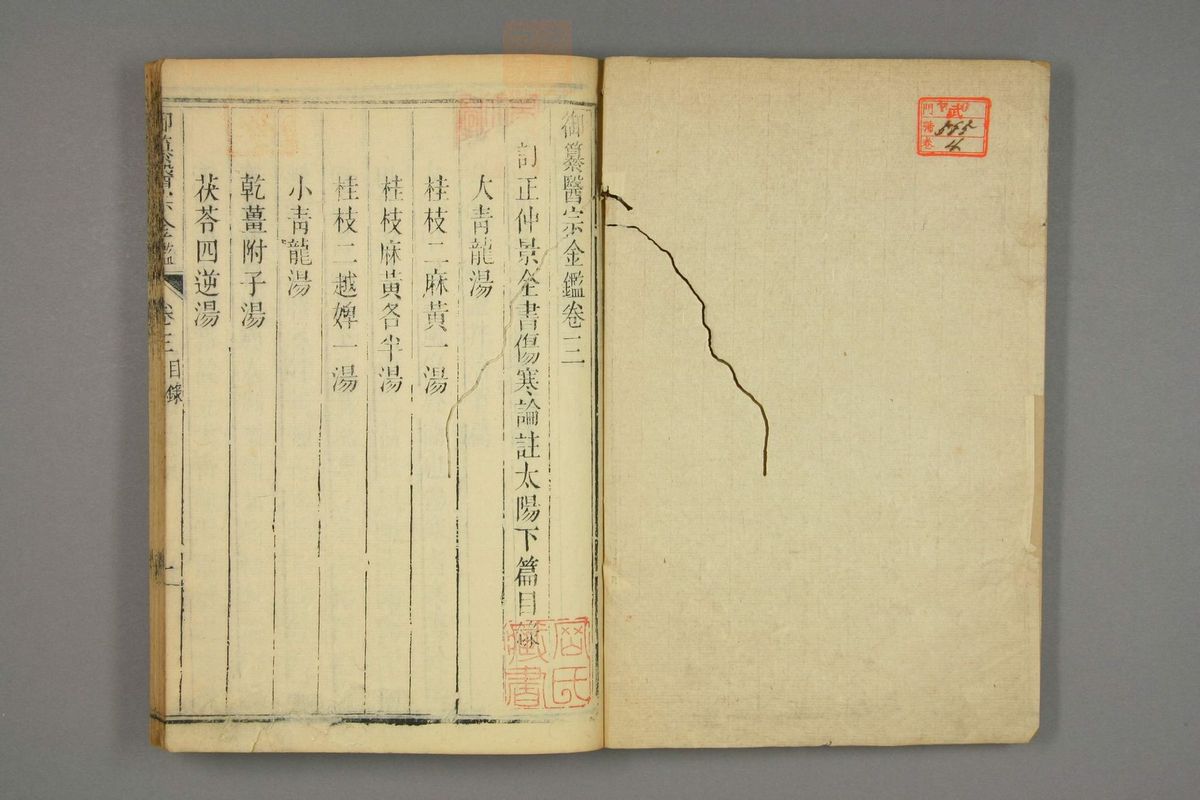 御纂醫宗金鑑卷三
訂正仲景全書傷寒論註太陽下篇目錄
大青龍湯
桂枝二麻黃一湯
桂枝麻黃各半湯
桂枝二越婢一湯
小青龍湯
乾薑附子湯
茯苓四逆湯
御纂醫宗金鑑 卷三 目錄 一
門 號 卷
武
555
4
周氏
藏書